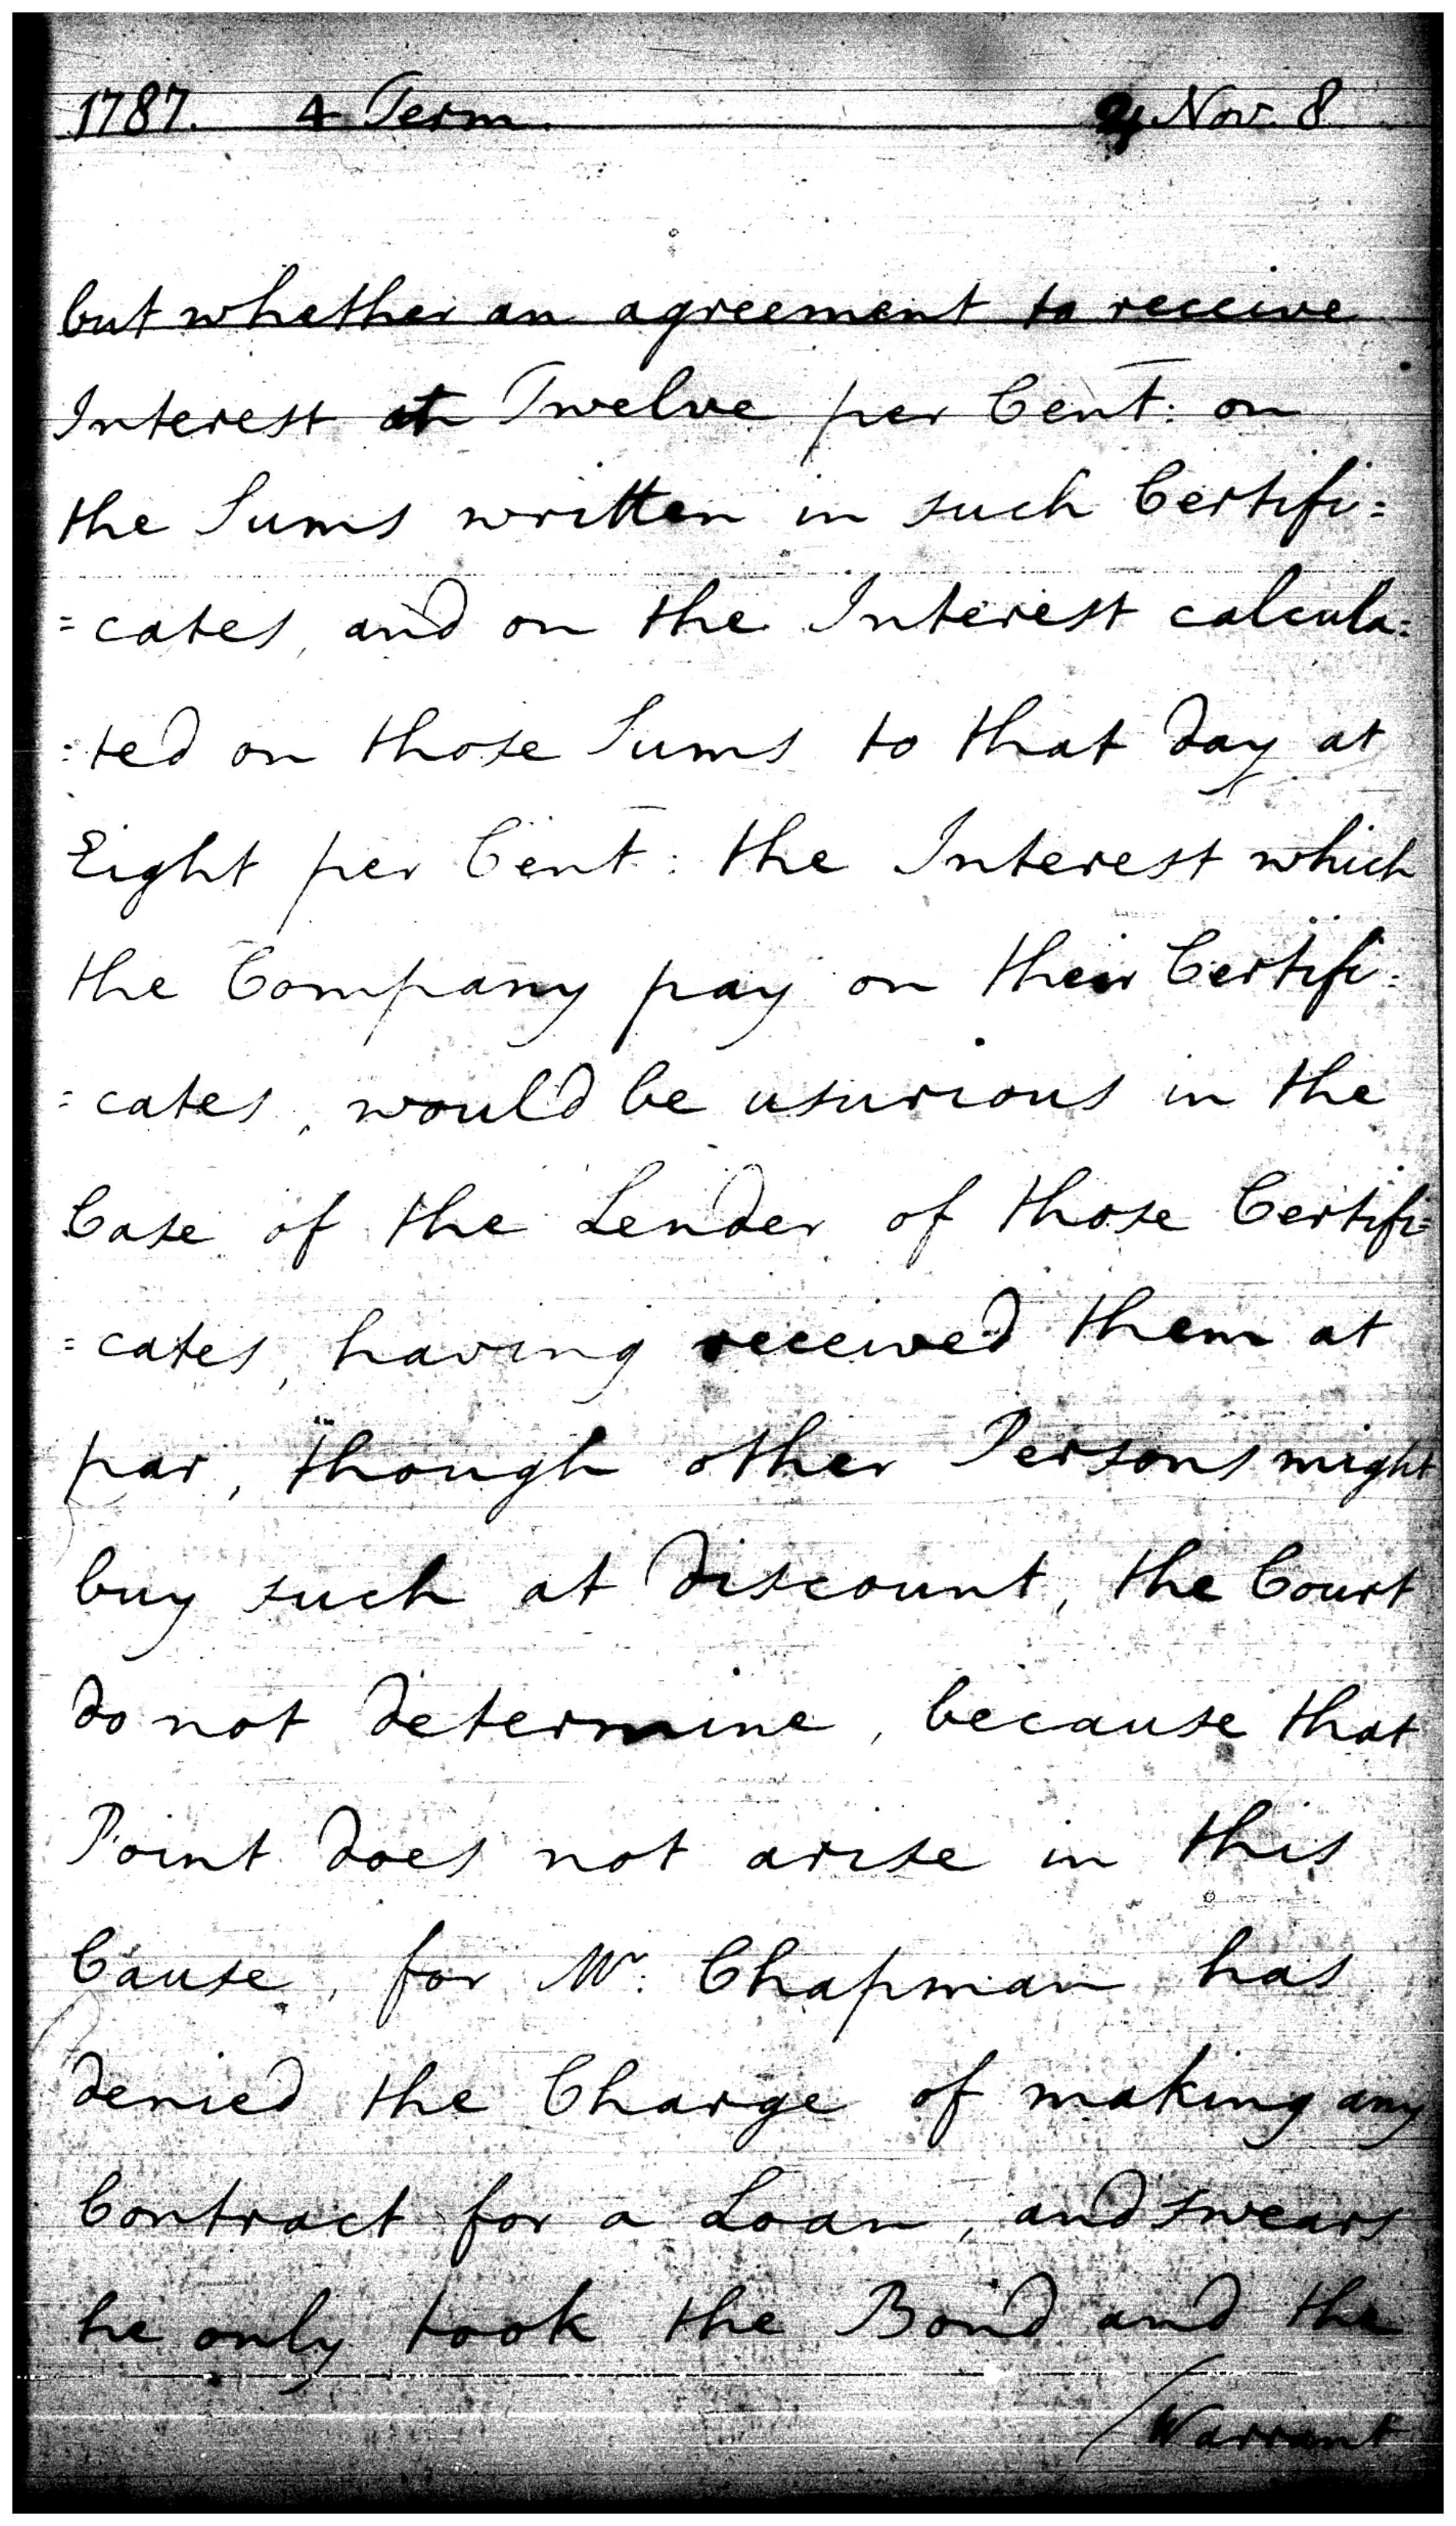 1787. 4 Term. ♃ Nov. 8
but whether an agreement to receive
Interest at Twelve per Cent: on
the Sums written in such Certifi=
=cates, and on the Interest calcula=
=ted on those Sums to that day at
Eight per Cent: the Interest which
the Company pay on their Certifi=
=cates, would be usurious in the
Case of the Lender of those Certifi=
=cates, having received them at
par, though other Persons might
buy such at discount, the Court
do not determine, because that
Point does not arise in this
Cause, for Mr. Chapman has
denied the Charge of making any
Contract for a Loan, and swears
he only took the Bond and the
/Warrant